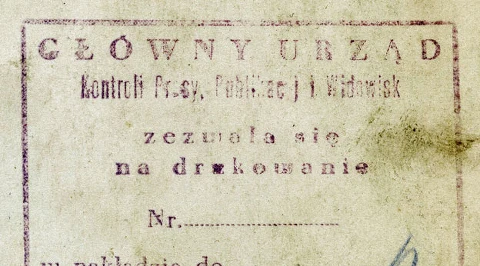 GŁÓWNY URZĄD
Kontroli Prasy, Publikacji i Widowisk
zezwala się
na drukowanie
Nr.
w nakładzie do